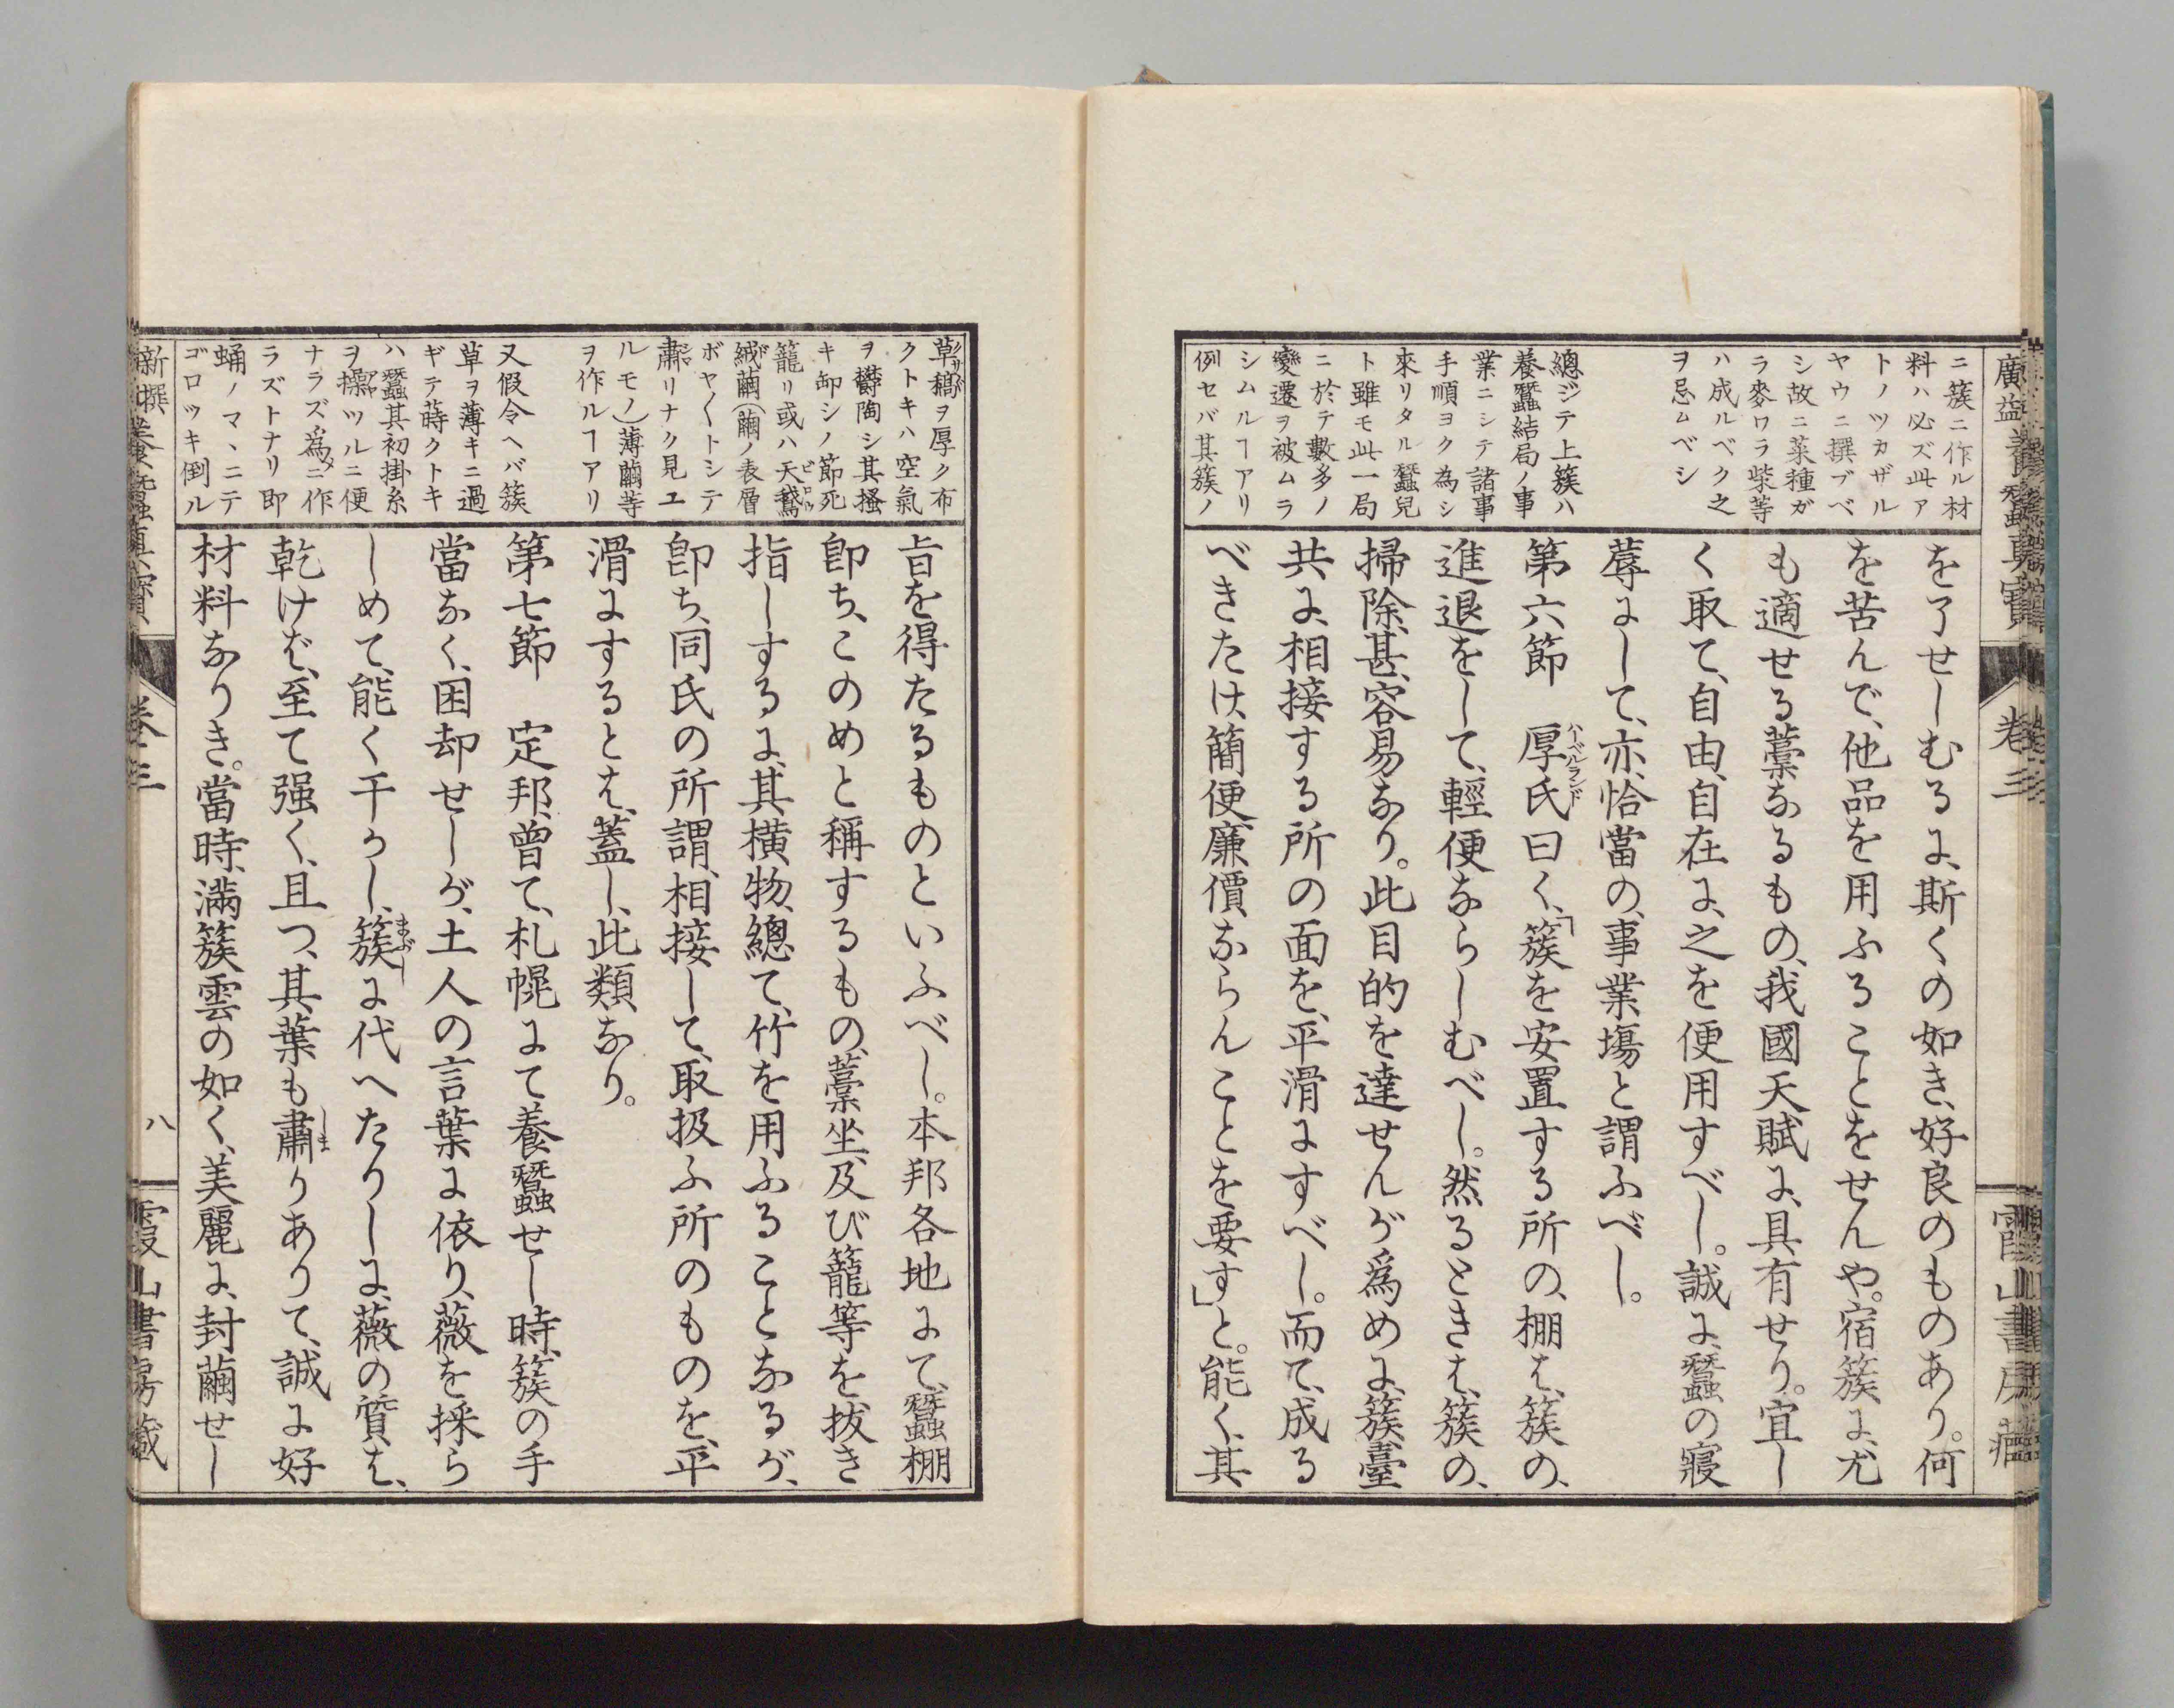 廣益養蠶真寶
卷三
霞山書房藏
ニ簇ニ作ル材
料ハ必ズ此ア
トノツカザル
ヤウニ撰ブベ
シ故ニ菜種ガ
ラ麥ワラ柴等
ハ成ルベク之
ヲ忌ムベシ
總ジテ上簇ハ
養蠶結局ノ事
業ニシテ諸事
手順ヨク為シ
來リタル蠶兒
ト雖モ此一局
ニ於テ數多ノ
變遷ヲ被ムラ
シムルヿアリ
例セバ其簇ノ
を了せしむるに、斯くの如き、好良のものあり。何
を苦んで、他品を用ふることをせんや。宿簇に、尤
も適せる藁なるもの、我國天賦に、具有せり。宜し
く取て、自由、自在に、之を便用すべし。誠に、蠶の寢
蓐にして、亦、恰當の、事業塲と謂ふべし。
第六節　厚氏曰く、「簇を安置する所の、棚は、簇の、
ハーベルランド
進退をして、輕便ならしむべし。然るときは、簇の、
掃除、甚、容易なり。此目的を達せんが爲めに、簇臺
共に、相接する所の面を、平滑にすべし。而て、成る
べきたけ、簡便、廉價、ならんことを要す」と。能く、其
草稿ヲ厚ク布
クトキハ空氣
ヲ欝陶シ其搔
キ卸シノ節死
籠リ或ハ天鵞
絨繭(繭ノ表層
ボヤ〱トシテ
肅リナク見エ
ルモノ)薄繭等
ヲ作ルヿアリ
又假令ヘバ簇
草ヲ薄キニ過
ギテ蒔クトキ
ハ蠶其初掛糸
ヲ操ツルニ便
ナラズ爲メニ作
ラズトナリ即
蛹ノマヽニテ
ゴロツキ倒ル
旨を得たるものといふべし。本邦各地にて、蠶棚
卽ち、このめと稱するもの、藁坐、及び籠等を、拔き
指しするに、其橫物、總て、竹を用ふることなるが、
卽ち、同氏の所謂、相接して、取扱ふ所のものを、平
滑にするとは、蓋し、此類なり。
第七節　定邦、曾て、札幌にて養蠶せし時、簇の手
當なく、困却せしが、土人の言葉に依り、薇を採ら
しめて、能く干かし、簇に代へたりしに、薇の質は、
まぶし
乾けば、至て强く、且つ、其葉も肅りありて、誠に好
しま
材料なりき。當時、滿簇雲の如く、美麗に、封繭せし
新撰養蠶真寶
卷三
八
霞山書房藏